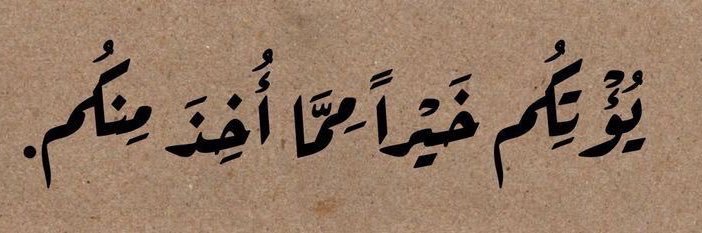 يُؤْتِكُم خَيْراً مِمَّا أُخِذَ مِنكُم.